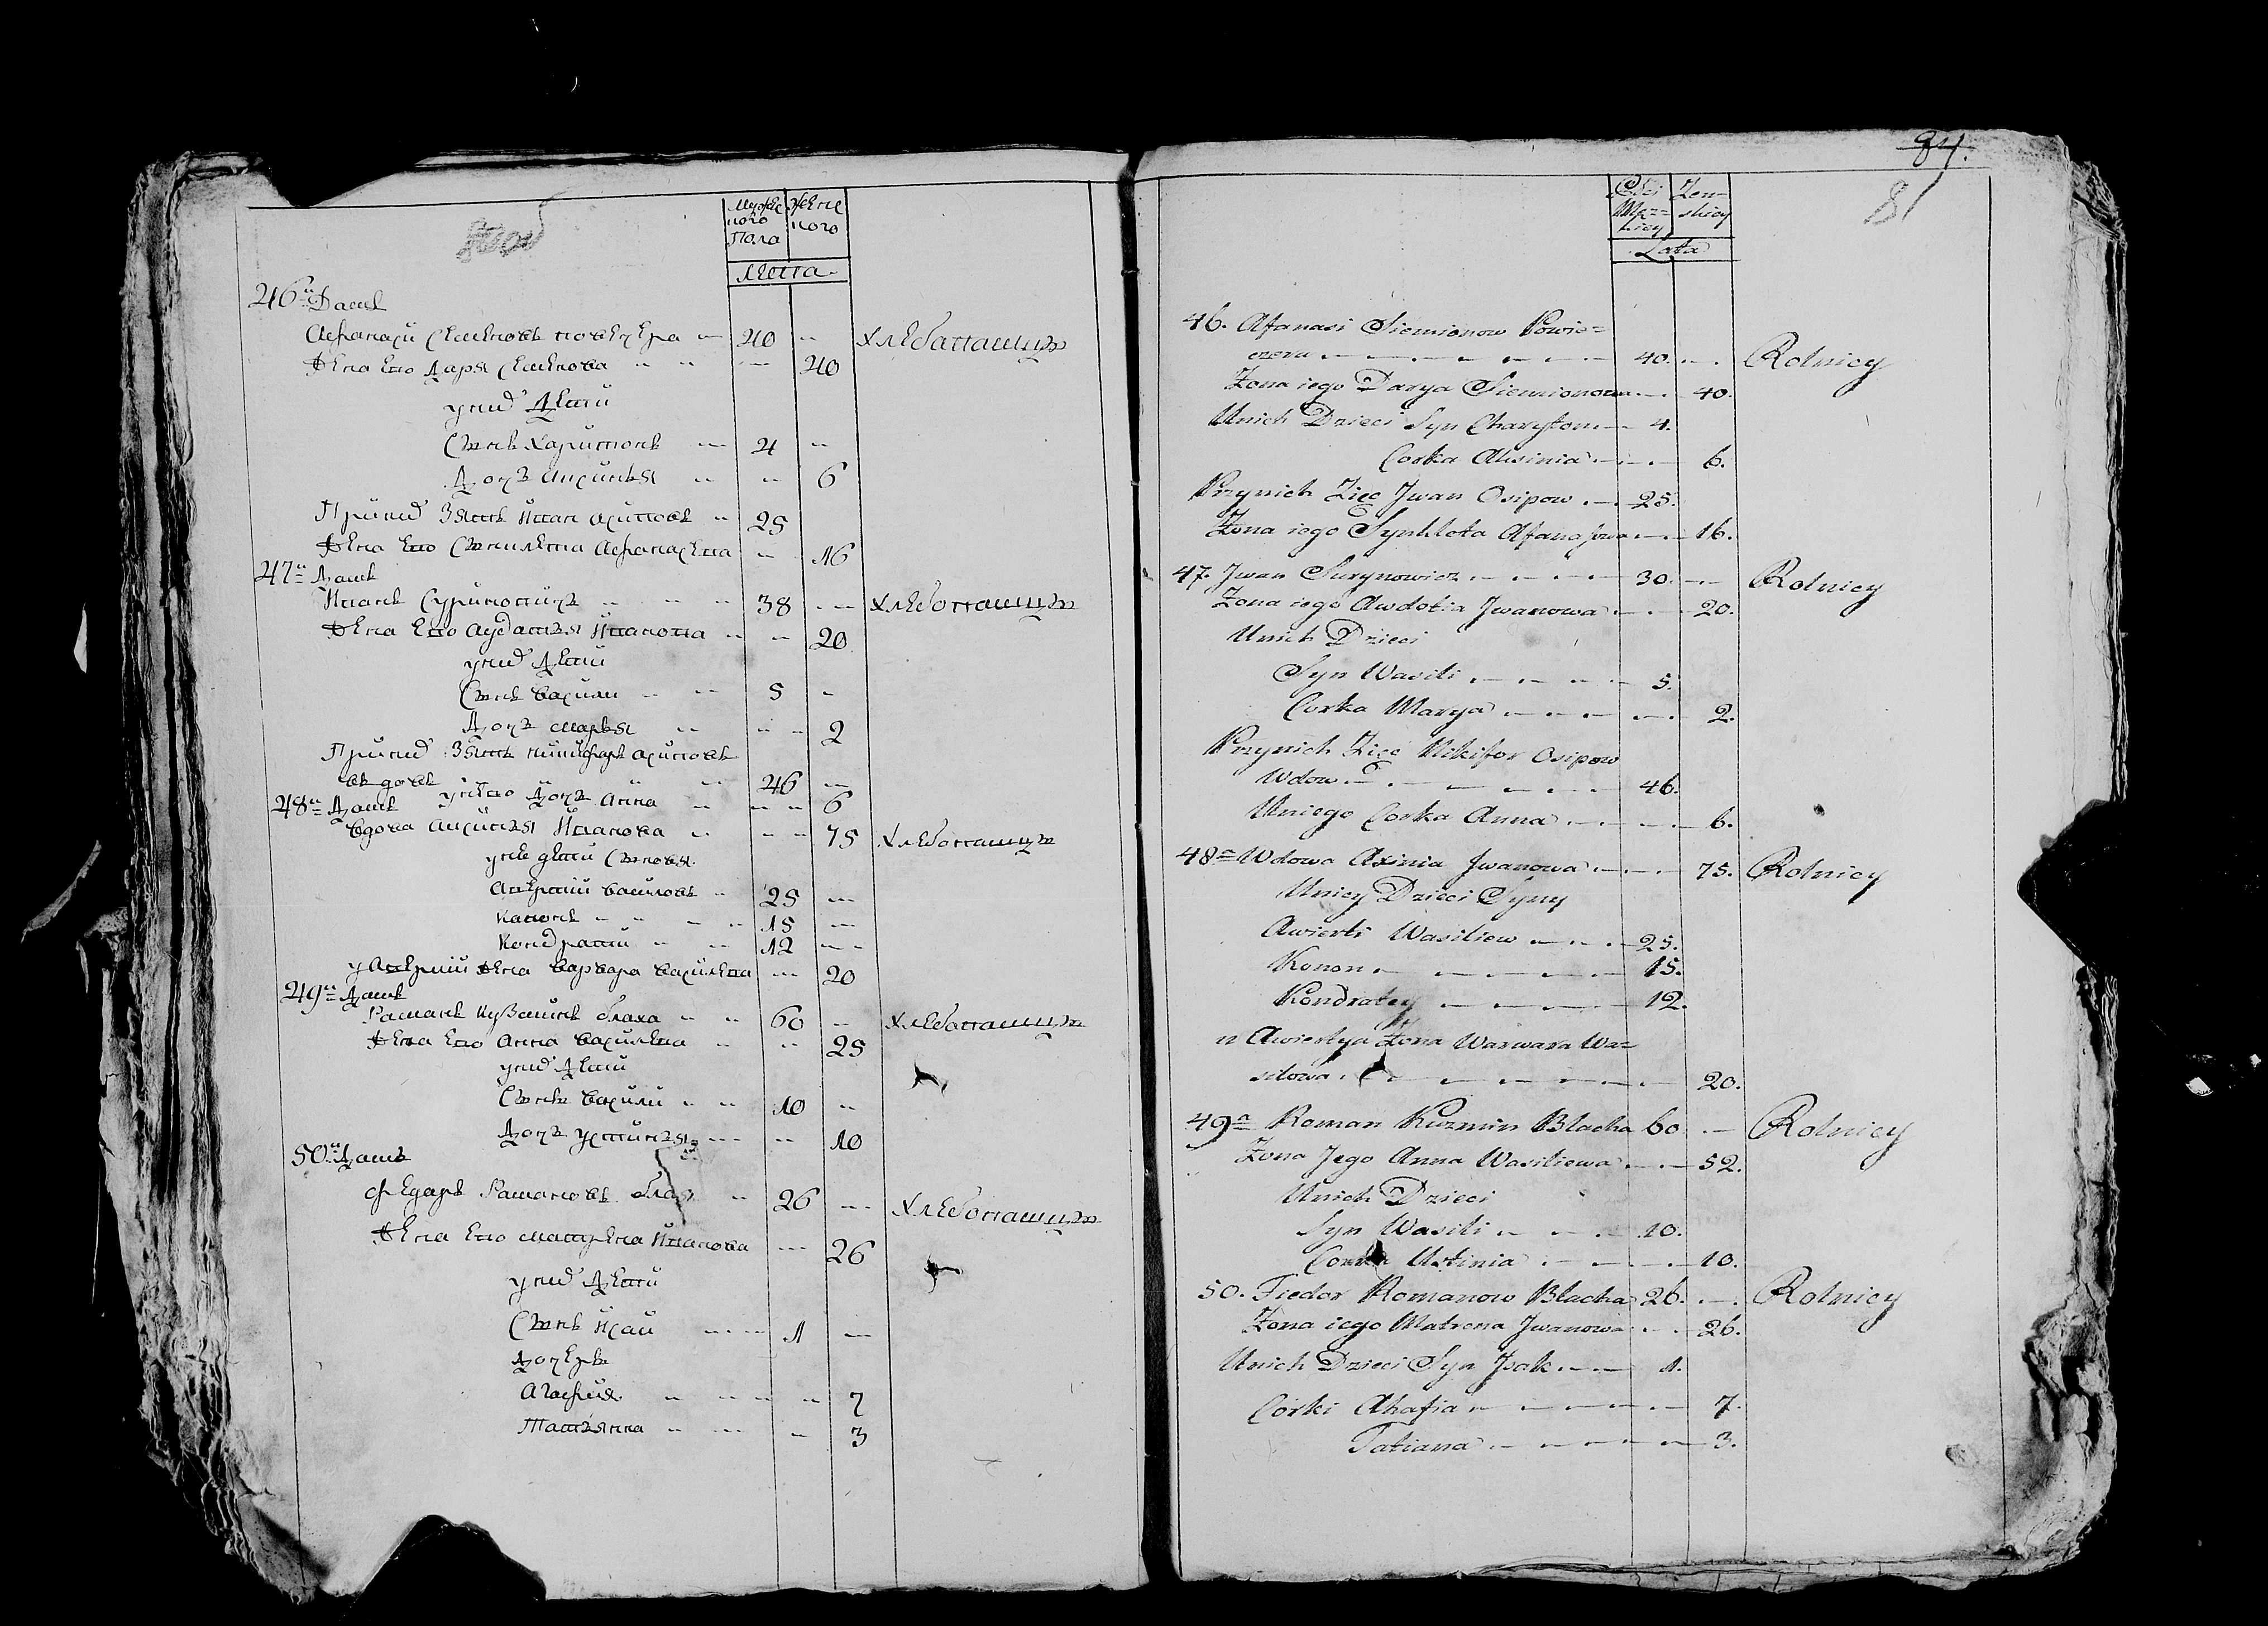 Мужес
кого
Пола
женс
кого
Лета
46й Домъ
Афанаси Семеновъ повечера 40
Жена Ево Даря Семенова 40
унид Дети
Сынъ Харитонъ 4
Дочъ Ахсинья 6
При нид Зять Иван Оситовъ 25
Жена Ево Синклета Афанасева 16
47й Домъ
Иванъ Суриновичъ 38
Жена Ево Авдотья Иванова 20
унид Дети
Сынъ Василии 5
Дочъ Марья 2
При нид Зять Никифоръ Осиповъ
въ довъ 46
у нево Дочъ Анна 6
48й Домъ
Вдова Аксинья Иванова 75
уне дети Сыновья
Аверкии Василовъ 25
Канонъ 15
Кондрати 12
у Аверкии Жена Варвара Василева 20
49й Домъ
Раманъ Кузминъ блаха 60
Жена Ево Анна Василева 25
унид Дети
Сынъ Василии 10
Дочъ Устинья 10
50й Домъ
Федаръ Рамановъ 26
Жена Ево Матрена Иванова 26
унид Дети
Сынъ Исаи 1
Дочеръ
Агафия 7
Татьянна 3
Хлебопашцы
Хлебопашцы
Хлебопашцы
Хлебопашцы
Хлебопашцы
84.
81
Płci
Męz=
kiey
Zen=
skiey
Lata
46. Afanasi Siemionow Powie=
czera 40. Rolnicy
Zona iego Darya Siemionowa 40.
Unich Dzieci Syn Charyton 4.
Corka Aksinia 6.
Przynich Zięc Jwan Osipow 25.
Zona iego Synkleta Afanasowa 16.
47. Jwan Surynowicz 30. Rolnicy
Zona iego Awdotia Jwanowa 20.
Unich Dzieci
Syn Wasili 5.
Corka Marya 2.
Przynich Zięc Nikifor Osipow
Wdow. 46.
Uniego Corka Anna 6.
48a Wdowa Axinia Jwanowa 75. Rolnicy
Uniey Dzieci Syny
Awierki Wasiliew 25.
Konon 15.
Kondratey 12.
u Awierkya Zona Warwara Wa=
silowa 20.
49a Roman Kuzmin Blacha 60 Rolnicy
Zona Jego Anna Wasiliewa 52.
Unich Dzieci
Syn Wasili 10.
Corka Ustinia 10.
50. Fiedor Romanow Blacha 26. Rolnicy
Zona iego Matrona Jwanowa 26.
Unich Dzieci Syn Jsak 1.
Corki Ahafia 7.
Tatiana 3.